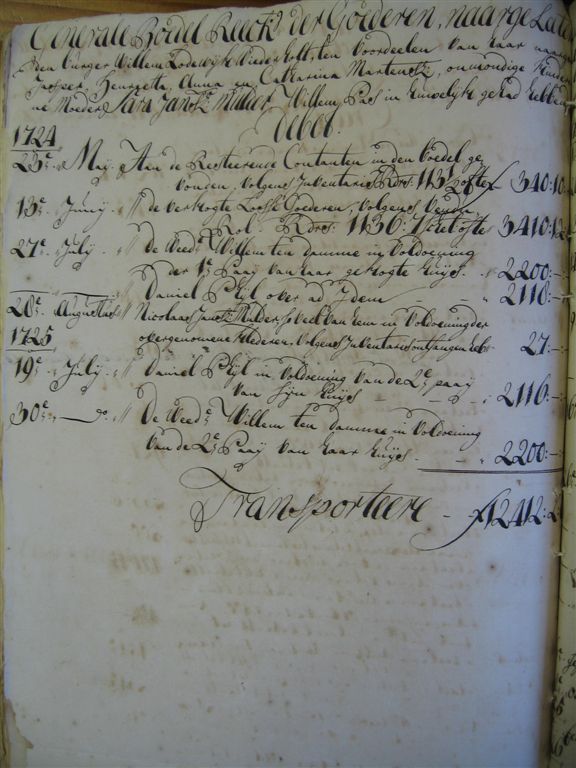 Generale Boedel Reeck: der Goederen, naargelaten
den burger Willem Lodewijk Wiederholt, ten voordeelen van haar naargel
Jasper, Henrietta, Anna en Catharina Martensz, onmondige kinder
ne Moeder Sara Jansz: Mulder Willem Pas in huwelijk gehad hebben
Debet.
1724
23e „ Maij Aan de Resteerende Contanten in den boedel ge
vonden, volgens Inventaris Rds: 113 ofte 340:10
13e „ Junij „ de verkogte Losse Goederen, volgens Vendu
Rol. Rds: 1136: ofte 3410:12
27e „ Julij „ de Wede Willem ten damme in voldoening
der 1e Paaij van haar gekogte huijs. „ 2200:—:
„ Daniel Pfijl over ad Idem — „ 2118:—:
28e „ Augustus „ Nicolaas Jansz Mulder, van hem in voldoening der
1725
overgenomene klederen, volgens Inventaris ontfangen 27:—:
19e „ Julij „ Daniel Pfijl in voldoening van de 2e paaij
van zijn huijs — 2116:—:
30e „ — do „ De Wede Willem ten damme in voldoening
van de 2e Paaij van haar huijs — „ 2200:—:
Transporteere — ƒ12412:2